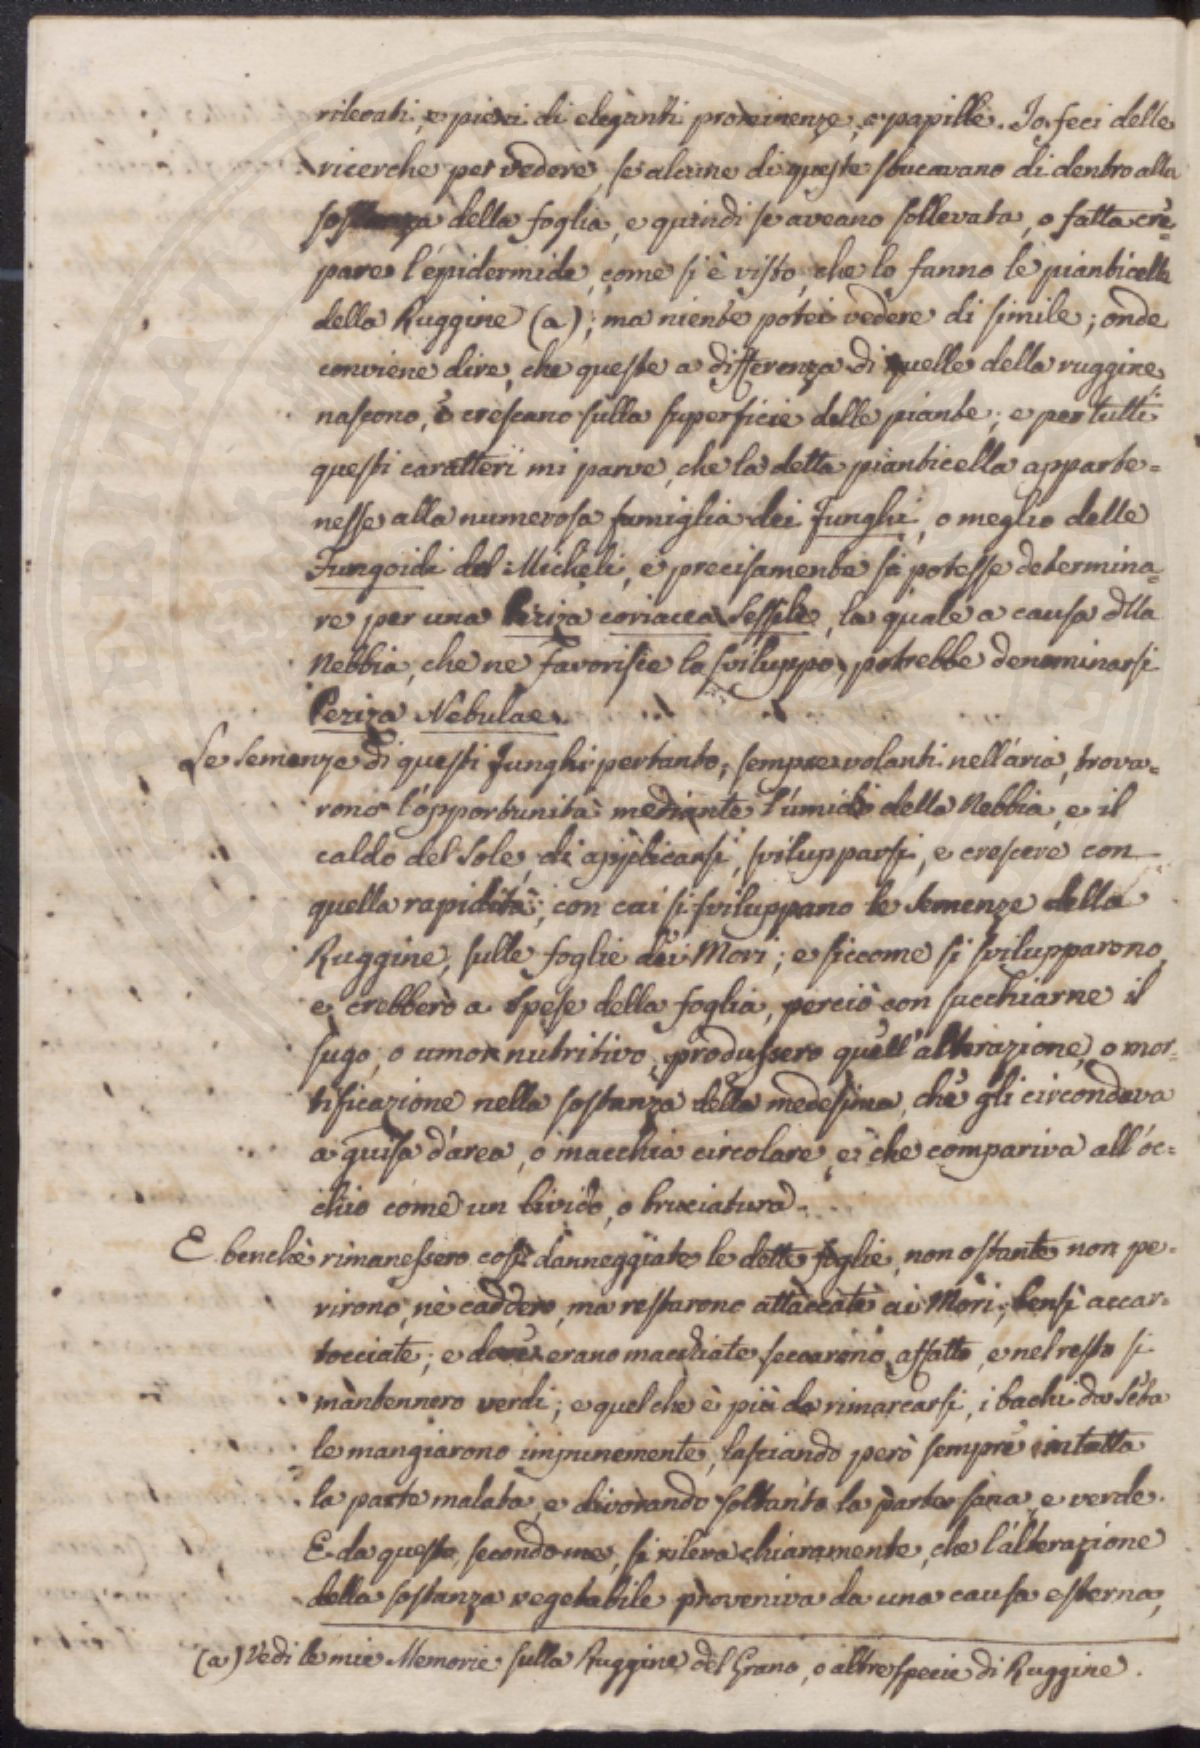 rilevati, e pieni di eleganti prominenze, e papille. Io feci delle
ricerche per vedere, se alcune di queste sbucavano di dentro alla
sostanza della foglia, e quindi se aveano sollevata, o fatta cre-
pare l'epidermide, come si è visto, che lo fanno le pianticelle
della Ruggine (a); ma niente potei vedere di simile; onde
conviene dire, che queste a differenza di quelle della ruggine
nascono, e crescano sulla superficie delle piante; e per tutti
questi caratteri mi parve, che la detta pianticella apparte-
nesse alla numerosa famiglia dei Funghi, o meglio delle
Fungoidi del Micheli, e precisamente si potesse determina-
re per una Peziza coriacea Sessile, la quale a causa dlla
Nebbia, che ne favorisce lo sviluppo, potrebbe denominarsi
Peziza Nebulae.
Le Semenze di questi Funghi pertanto, sempre volanti nell'aria, trova-
rono l'opportunità mediante l'umido della Nebbia, e il
caldo del Sole, di applicarsi, svilupparsi, e crescere con
quella rapidità, con cui si sviluppano le Semenze della
Ruggine, sulle foglie dei Mori; e siccome si svilupparono,
e crebbero a spese della foglia, perciò con succhiarne il
sugo, o umor nutritivo, produssero quell'alterazione, o mor-
tificazione nella sostanza della medesima, che gli circondava
a guisa d'area, o macchia circolare, e che compariva all'oc-
chio come un livido, o bruciatura.
E benchè rimanessero così danneggiate le dette foglie, non ostante non pe-
rirono, nè caddero, ma restarono attaccate ai Mori, bensì accar-
tocciate; e dove erano macchiate seccarono affatto, e nel resto si
mantennero verdi; e quel che è più da rimarcarsi, i bachi da Seta
le mangiarono impunemente, lasciando però sempre intatta
la parte malata, e divorando soltanto la parte sana, e verde.
E da questo, secondo me, si rileva chiaramente, che l'alterazione
della sostanza vegetabile proveniva da una causa esterna,
(a) Vedi le mie Memorie sulla Ruggine del Grano, o altre specie di Ruggine.